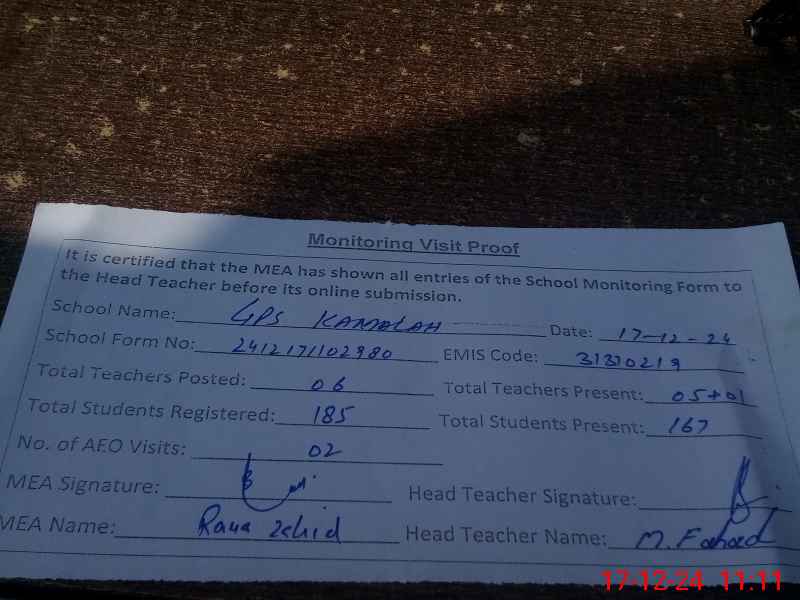 Monitoring Visit Proof
It is certified that the MEA has shown all entries of the School Monitoring Form to
the Head Teacher before its online submission.
School Name: GPS KAMALAH Date: 17-12-24
School Form No: 2412171102980 EMIS Code: 31310219
Total Teachers Posted: 06 Total Teachers Present: 05+01
Total Students Registered: 185 Total Students Present: 167
No. of AEO Visits: 02
MEA Signature: Head Teacher Signature:
MEA Name: Rana Zahid Head Teacher Name: M. Fahad
17-12-24 11:11